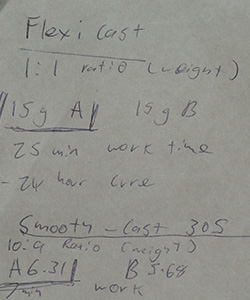 Flexi cast
1:1 ratio (weight)
15g A 15g B
25 min work time
- 24 hour cure
Smooth-Cast 305
10:9 Ratio (weight)
A 6.31 B 5.68
7 min work